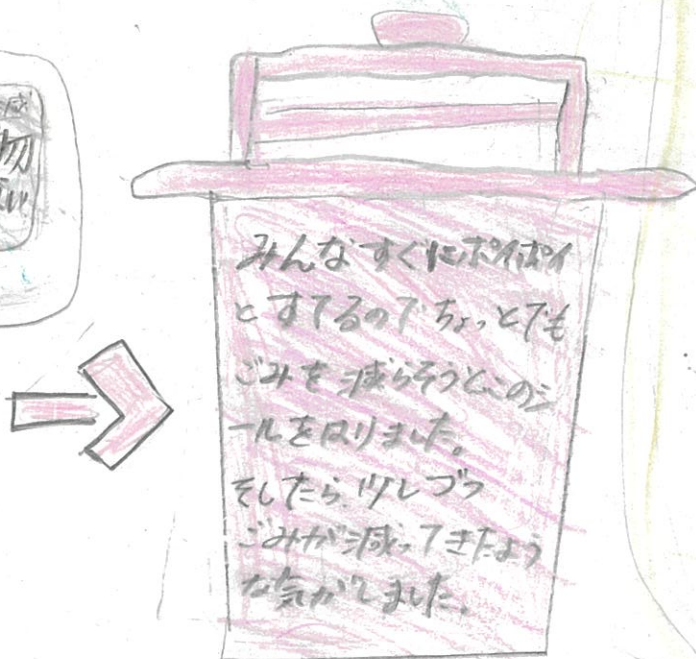 みんなすぐにポイポイ
とすてるのでちょっとでも
ごみを減らそうとこのシ
ールをはりました。
そしたら少しづつ
ごみが減ってきたよう
な気がしました。